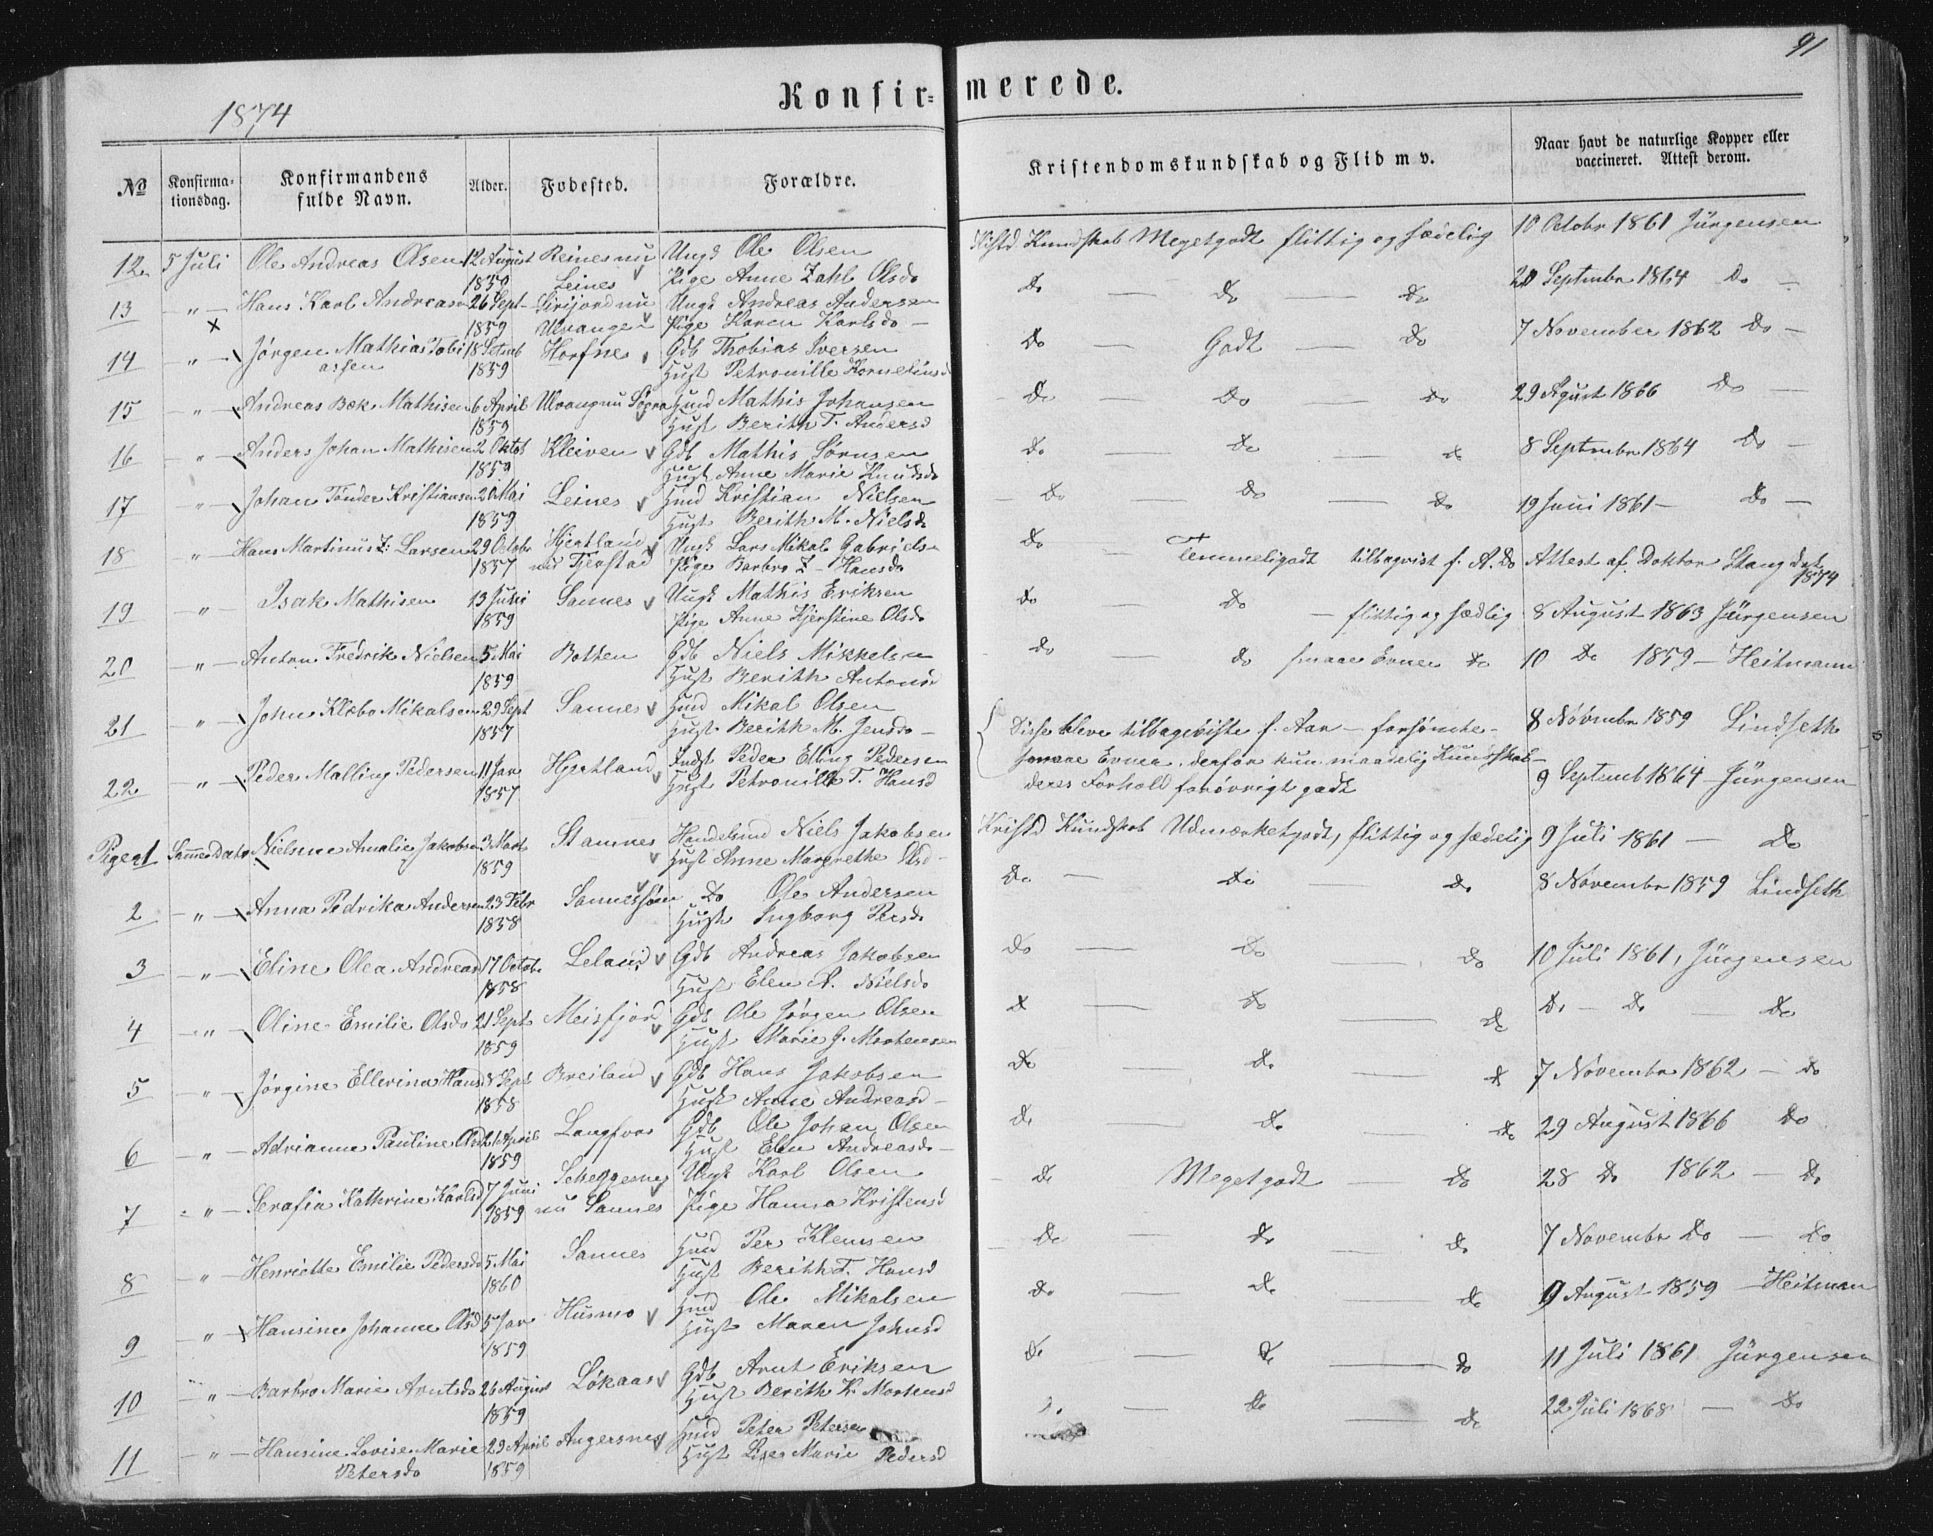 91
1874
Konfir= merede.
No Konfirma- tionsdag. Konfirmandens fulde Navn. Alder. Fødested. Forældre. Kristendomskundskab og Flid m v. Naar havt de naturlige Kopper eller vaccineret. Attest derom.
12 5 Juli Ole Andreas Olsen 12 August 1859 Reines nu Leines Ungk Ole Olsen Pige Anne Zahl Olsdo Kristd Kundskab Megetgodt flittig og sædelig 10 Octobr 1861 Jürgensen
13 " Hans Karl Andreasen 26 Sept 1859 nu Ulvangen Ungk Andreas Andersen Pige Karen Karlsdo Do Do Do 20 Septembr 1864 Do
14 " Jørgen Mathias Tobiassen 18 1859 Gdb Thobias Iversen Hust Petronille Do Godt Do 7 November 1862 Do
15 " Andreas Bæk Mathisen 6 April 1859 Ulvangnu Husd Mathis Johansen Hust Berith T. Andersd Do Do Do 29 Agust 1866 Do
16 " Anders Johan Mathisen 2 Oktob 1859 Kleiven Gdb Mathis Sørnsen Hust Anne Marie Knudsdo Do Do Do 8 Septembr 1864 Do
17 " Johan Tønder Kristiansen 20 Mai 1859 Leines Hmd Kristian Nielsen Hust Berith M. Nielsd Do Do Do 19 Juni 1861 Do
18 " Hans Martinus Z. Larsen 29 Octobr 1857 Hjertland nu Tjerstad Ungk Lars Mikal Gabrielsn Pige Barbro Z Hansdo Do Temmeligodt tilbagvist f. A. Do Attest af Doktor Stang dat 1874
19 " Isak Mathisen 13 Juni 1859 Sannes Ungk Mathis Eriksen Pige Anne Kjerstine Olsdo Do Do flittig og sædlig 8 August 1863 Jürgensen
20 " Anton Fredrik Nielsen 5 Mai 1859 Botten Gdb Niels Mikkelsen Hust Berith Antonsd Do Do smaae Evner Do 10 Do 1859 Heitmann
21 " John Klæbo Mikalsen 29 Sept 1857 Sannes Hmd Mikal Olsen Hust Berith M. Jensdo Disse bleve tilbageviste f. Aar forsømte 8 Novembr 1859 Lindseth
22 " Peder Malling Pedersen 11 Jan 1857 Hjertland Indst Peder Elling Pedersen Hust Petronille T. Hansd smaae Evner, derfor kun maadelig Kundskab deres Forhold forøvrigt godt 9 Septemb 1864 Jürgensen
Piger 1 Samme Dato Nielsine Amalie Jakobsn 3 Mart 1859 Stamnes Handelsmd Niels Jakobsen Hust Anne Margrethe Olsd Kristd Kundskab Udmærketgodt, flittig og sædelig 9 Juli 1861 Do
2 " Anna Pedrika Andersen 23 Febr 1858 Sannessøen Do Ole Andersen Hust Ingborg Persdo Do Do Do 8 Novembr 1859 Lindseth
3 " Eline Olea Andreasd 17 Octob 1858 Leland Gdb Andreas Jakobsen Hust Elen A. Nielsdo Do Do Do 10 Juli 1861, Jürgensen
4 " Oline Emilie Olsdo 21 Sept 1859 Meisfjord Gdb Ole Jørgen Olsen Hust Marie J. Mortensen Do Do Do Do Do Do
5 " Jørgine Ellerina Hansd 8 Sept 1858 Breiland Gdb Hans Jakobsen Hust Anne Andreasd Do Do Do 7 Novembr 1862 Do
6 " Adrianne Pauline Olsd 21 April 1859 Langfvar Gdb Ole Johan Olsen Hust Elen Andreasdo Do Do Do 29 August 1866 Do
7 " Serafia Kathrine Karlsd 7 Juni 1859 nu Sannes Ungk Karl Olsen Pige Hanna Kristensd Do Megetgodt Do 28 Do 1862 Do
8 " Henriette Emilie Pedersdo 5 Mai 1860 Sannes Hmd Per Klemsen Hust Berith T. Hansd Do Do Do 7 Novembr Do Do
9 " Hansine Johanne Olsd 5 Jan 1859 Husmo Hmd Ole Mikalsen Hust Maren Johnsd Do Do Do 9 August 1859 Heitman
10 " Barbro Marie Arntsdo 26 August 1859 Løkaas Gdb Arnt Eriksen Hust Berith K. Mortensd Do Do Do 11 Juli 1861 Jürgensen
11 " Hansine Lovise Marie Petersdo 29 April 1859 Angersnes Hmd Peter Petersen Hust Lise Marie Pedersd Do Do Do 22 Juli 1868 Do